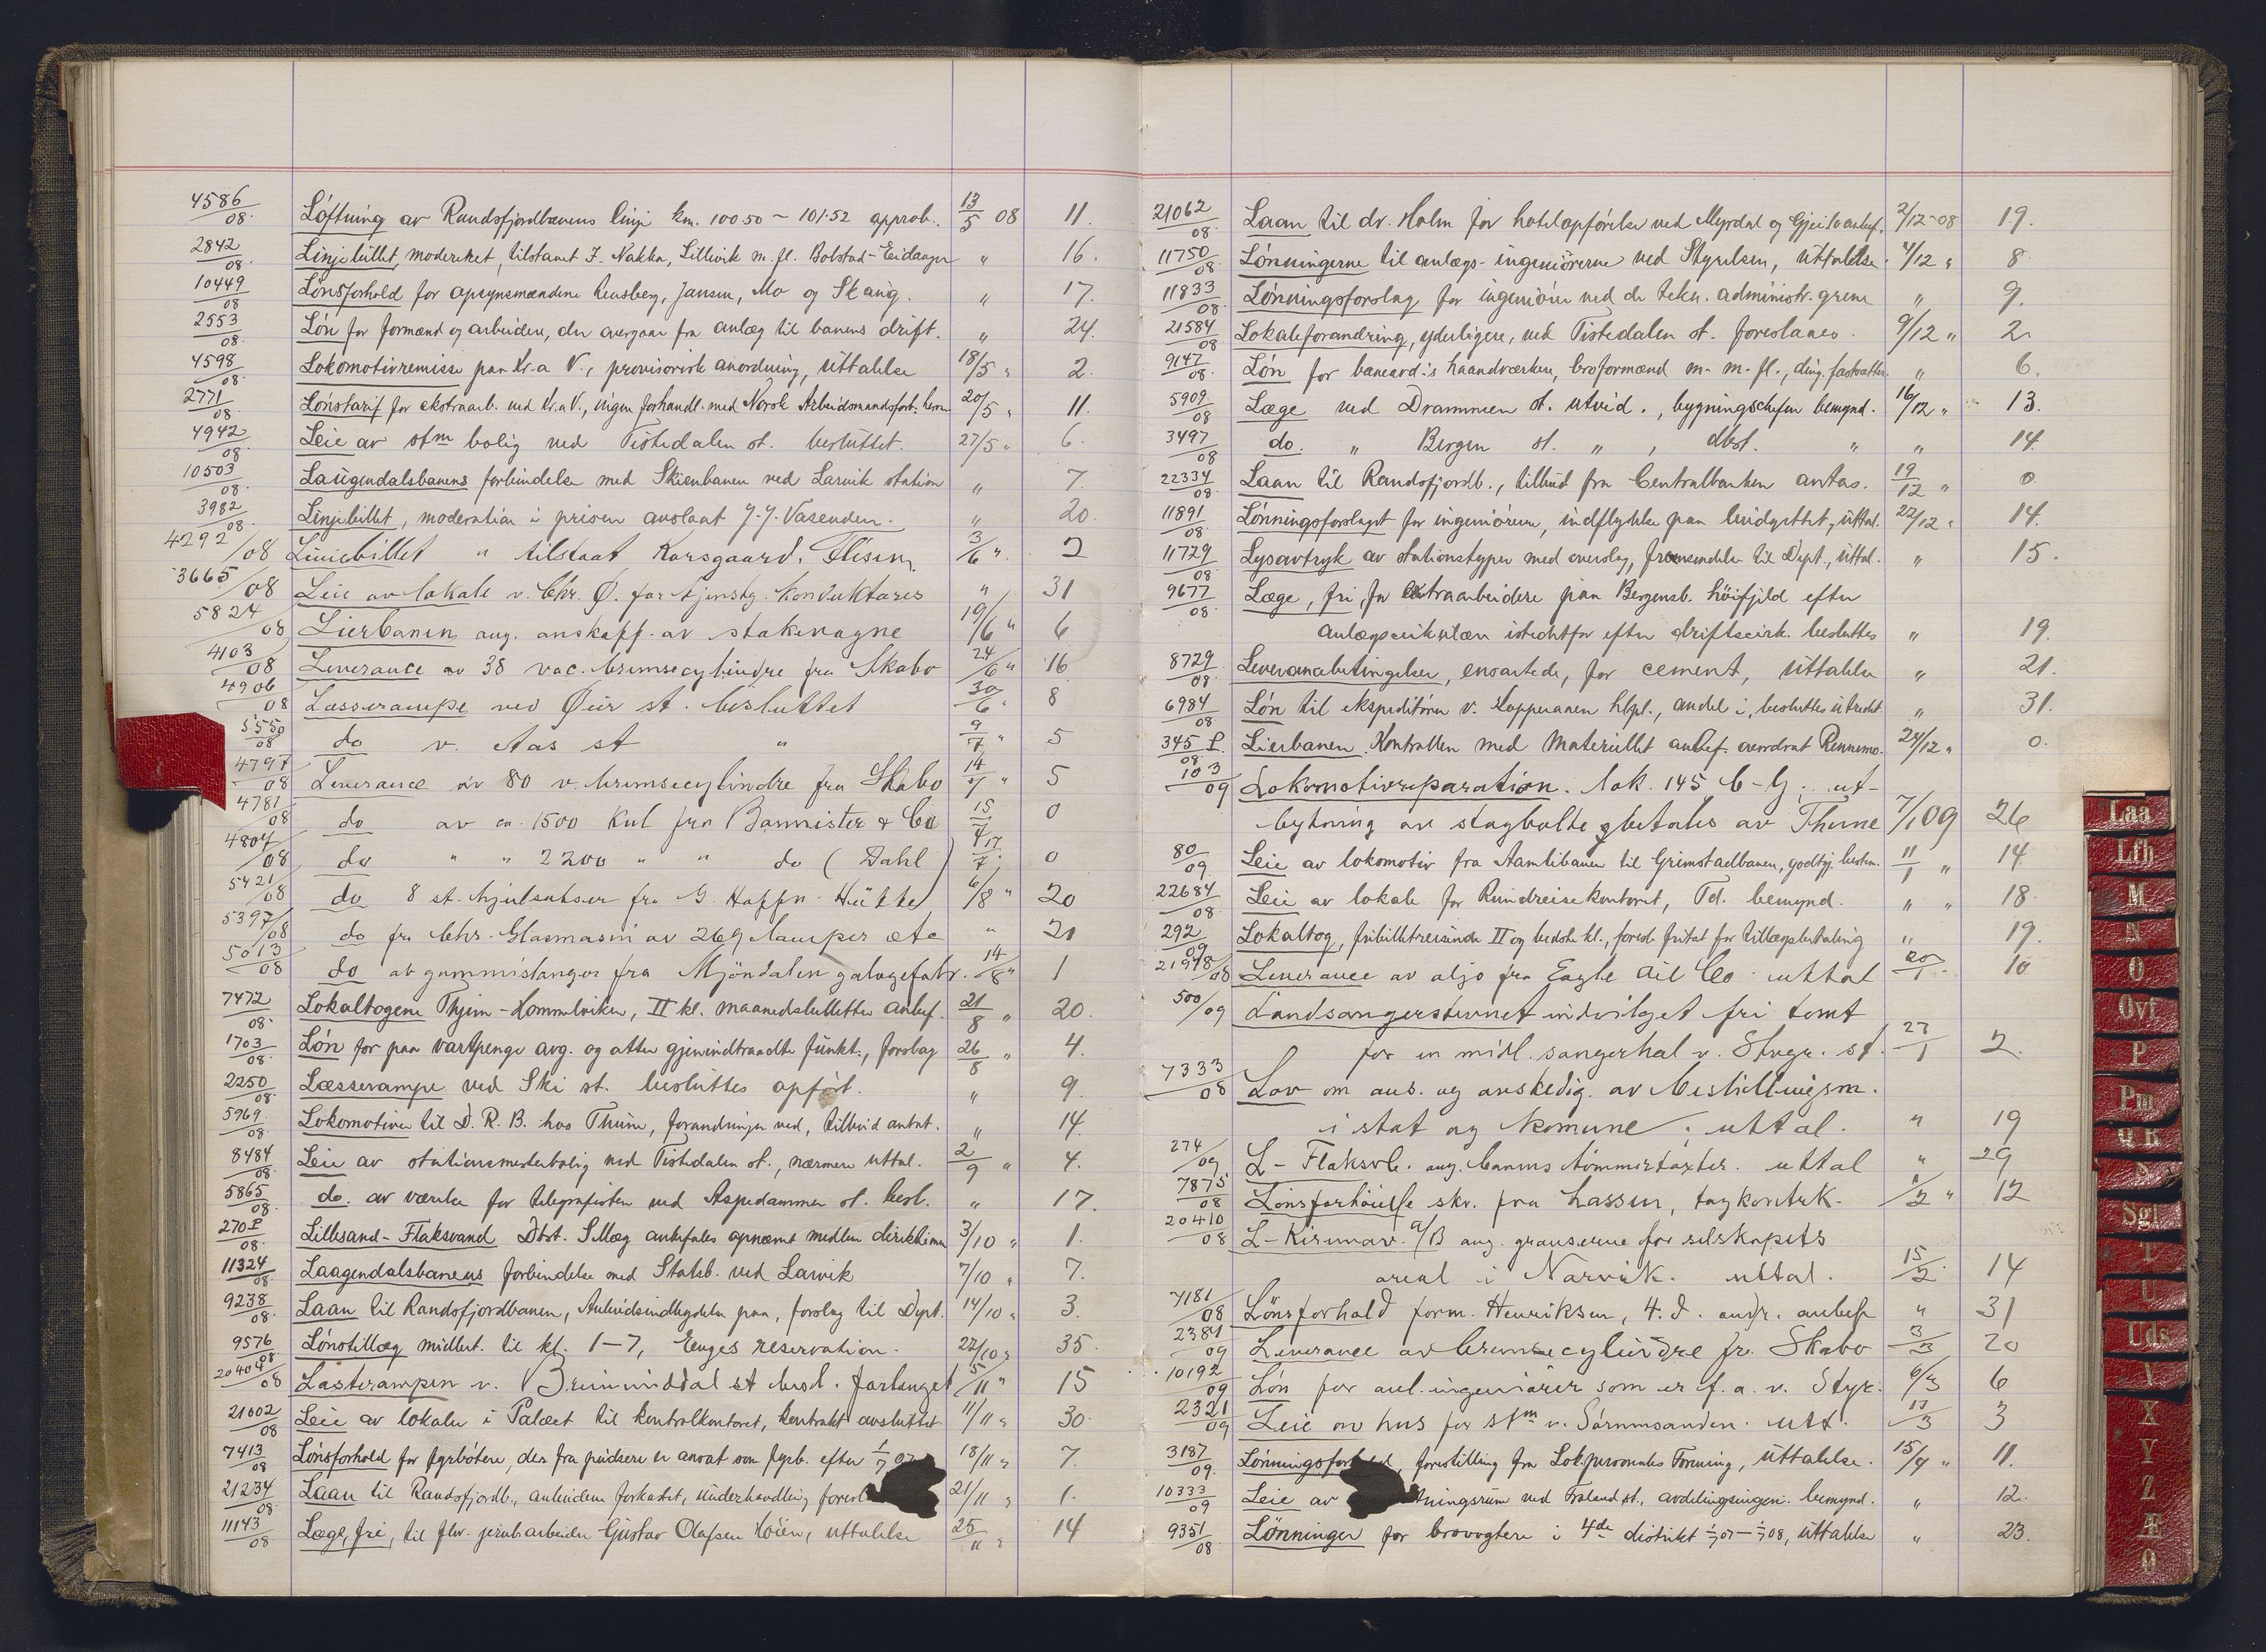 4586/08. Løftning av Randsfjordbanens linje km. 100.50 – 101.52 approb. 13/5 08 11.
2842/08. Linjebillet, modereret, tilstaaet J. Nakka, Lillevik m. fl. Bolstad – Eidanger " 16.
10449/08 Lønsforhold for opsynsmændene Rensberg, Jansen, Mo og Skaug. " 17.
2553/08. Løn for formænd og arbeidere, der overgaar fra anlæg til banens drift. " 24.
4598/08. Lokomotivremisse paa Kr.a V., provisorisk anordning, uttalelse 18/5 " 2.
2771/08. Lønstarif for ekstraarb. ved Kr.a V., ingen forhandl. med Norsk Arbeidsmandsforb. herom 20/5 " 11.
4942/08. Leie av stm bolig ved Tistedalen st. besluttet. 27/5 " 6.
10503/08. Laugendalsbanens forbindelse med Skienbanen ved Larvik station " 7.
3982/08. Linjebillet, moderation i prisen avslaat J. J. Vasenden. " 20.
4292/08 Liniebillet " tilstaat Korsgaard, Flisen. 3/6 " 2
3665/08 Leie av lokale v. Chr. Ø. for tjenstg. konduktører " 31
5824/08 Lierbanen ang. anskaff. av stakevogne 19/6 " 6
4103/08 Leverance av 38 vac. bremsecylindre fra Skabo 24/6 " 16
4906/08 Læsserampe ved Øier st. besluttet 30/6 " 8
5550/08 do v. Aas st " 9/7 " 5
4797/08 Leverance av 80 v. bremsecylindre fra Skabo 14/7 " 5
4781/08 do av ca. 1500 kul fra Bannister & Co 15/7 0
4807/08 do " " 2200 " " do (Dahl) 17/7. 0
5421/08 do 8 st. hjulsatser fra G. Hoffn. Hütte 6/8 " 20
5397/08 do fra Chr. Glasmasin av 269 lamper etc " 21
5013/08 do av gummislanger fra Mjöndalen galogefabr. 14/8 " 1
7472/08. Lokaltogene Thjem – Hommelviken, II kl. maanedsbilletter anbef. 21/8 " 20.
1703/08. Løn for paa vartpenge avg. og atter gjenindtraadte funkt., forslag 26/8 " 4.
2250/08. Læsserampe ved Ski st. besluttes opført. " 9.
5969/08. Lokomotiver til D. R. B. hos Thune, forandringer ved, tilbud antat. " 14.
8484/08. Leie av stationsmesterbolig ved Tistedalen st., nærmere uttal. 2/9 " 4.
5865/08. do. av værelse for telegrafisten ved Aspedammen st. besl. " 17.
270 P/08. Lillesand – Flaksvand Dbst. Sillæg anbefales opnævnt medlem direktionen 3/10 " 1.
11324/08. Laagendalsbanens forbindelse med Statsb. ved Larvik 7/10 " 7.
9238/08. Laan til Randsfjordbanen, Anbudsindbydelse paa, forslag til Dept. 14/10 " 3.
9576/08 Lønstillæg midlert. til kl. 1 – 7, Enges reservation. 22/10 " 35.
20404/08 Lasterampen v. st besl. forlenget 5/11 " 15
21002/08 Leie av lokaler i Palæet til kontrolkontoret, kontrakt avsluttet 11/11 " 30.
7413/08 Lønsforhold for fyrbøtere, der fra pudsere er ansat som fyrb. efter 1/7 07 18/11 " 7.
21234/08. Laan til Randsfjordb., anbudene forkastet, underhandling 21/11 " 1.
11143/08. Læge, fri, til fhv. jernbarbeider Gustav Olafsen Hoïen, uttalelse 25/11 " 14
21062/08. Laan til dr. Holm for hotelopførelse ved Myrdal og Gjeilo anbef. 2/12-08 19.
11750/08. Lønningerne til anlægs-ingeniørerne ved Styrelsen, uttalelse 4/12 " 8
11833/08. Lønningsforslag for ingeniører ved de tekn. administr. grene " 9.
21584/08 Lokaleforandring, yderligere, ved Tistedalen st. foreslaaes. 9/12 " 2.
9147/08. Løn for baneavd.'s haandverkere, broformænd m. m. fl., ding. fastsætter. " 6.
5909/08 Læge ved Drammen st. utvid., bygningschefen bemynd. 16/12 " 13.
3497/08 do. " Bergen st. " , dbst. " " 14.
22334/08. Laan til Randsfjordb., tilbud fra Centralbanken antas. 19/12 " 0
11891/08. Lønningsforslaget for ingeniørerne, indflydelse paa budgettet, uttal. 22/12 " 14.
11729/08. Lysavtryk av stationstyper med overslag, fremsendelse til Dept., uttal. " 15.
9677/08. Læge, fri, for extraarbeidere paa Bergensb. høifjeld efter
anlægscirkulæn istedetfor efter driftscirk. besluttes " 19.
8729/08. Leveransebetingelser, ensartede, for cement, uttalelse " 21.
6984/08 Løn til ekspeditøren v. Kopperaaen hlpl., andel i, besluttes utredet. " 31.
345 P./08. Lierbanen. Kontrollen med Materiellet anbef. overdrat Rennemo. 24/12 " 0.
103/09 Lokomotivreparation. lok. 145 C–G; ut-
bytning av stagbolte betales av Thune 7/1 09 26
80/09. Leie av lokomotiv fra Aamlibanen til Grimstadbanen, godtgj. bestem. 11/1 " 14.
22684/08. Leie av lokale for Rundreisekontoret, Td. bemynd. " " 18.
292/09 Lokaltog, fribilletreisende II og bedste kl., foresl. fritat for tillægsbetaling " 19.
21978/08 Leverance av oljo fra Eagle Oil Co uttal 20/1. 10
500/09 Landsangerstevnet indvilget fri tomt
for en midl. sangerhal v. Stvgr. st. 27/1 2.
7333/08 Lov om ans. og avskedig. av bestillingsm.
i stat og komune; uttal. " 19
274/09 L – Flaksvb. ang. banens tømmertaxter. uttal " 29
7875/08 Lønsforhøielse skr. fra Lassen, togkontrk. 1/2 " 12
20410/08 L – Kirunav. a/B ang. grænserne for selskapets
areal i Narvik. uttal. 15/2 14
7181/08 Lønsforhold form. Henriksen, 4. d. andr. anbef " 31
2381/09 Leverance av bremsecylindre fr. Skabo 3/3 20
10192/09 Løn for anl. ingeniører som er f. a. v. Styr. 6/3 6
2321/09 Leie av hus for stm v. Sørumsanden. utt. 17/3 3
3187/09. forestilling fra Lok.personalets Forening, uttalelse. 15/4 " 11.
10333/09 Leie av tningsrum ved st., avdelingsingen. bemynd. " 12.
9351/08. Lønninger for brovogtere i 4de distrikt 1/7 07 – 1/7 08, uttalelse " 23.
Laa
Lfh
M
N
O
Ovf
P
Pm
Q R
S
Sgl
T
U
Uds
V
X
Y
Z
Æ
Ø